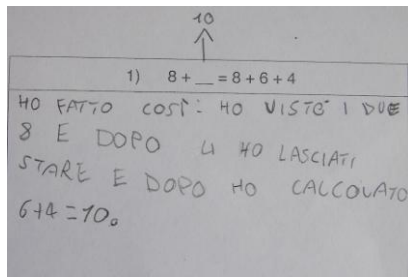 10
1) 8 + __ = 8 + 6 + 4
HO FATTO COSÌ: HO VISTO I DUE
8 E DOPO LI HO LASCIATI
STARE E DOPO HO CALCOLATO
6+4=10.